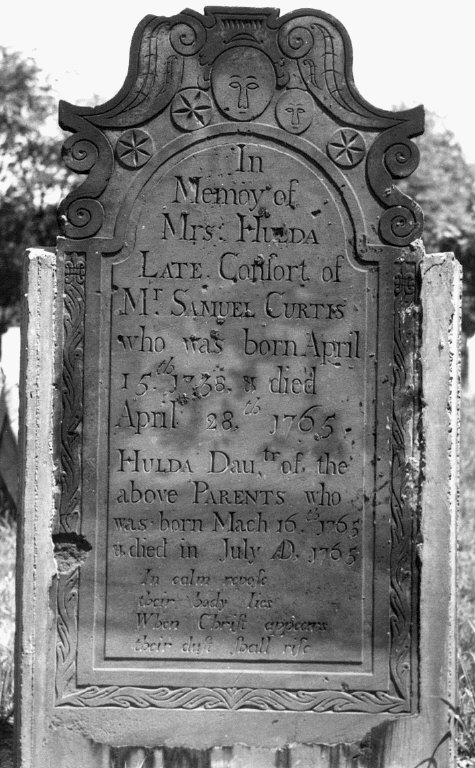 In
Memoy of
Mrs. HULDA
LATE Conſort of
Mr. SAMUEL CURTIS
who was born April
15.th 1738. & died
April 28.th 1765
HULDA Dau.tr of the
above PARENTS who
was born Mach 16.th 1765
& died in July AD. 1765
In calm repoſe
their body lies
When Chriſt appears
their duſt ſhall riſe